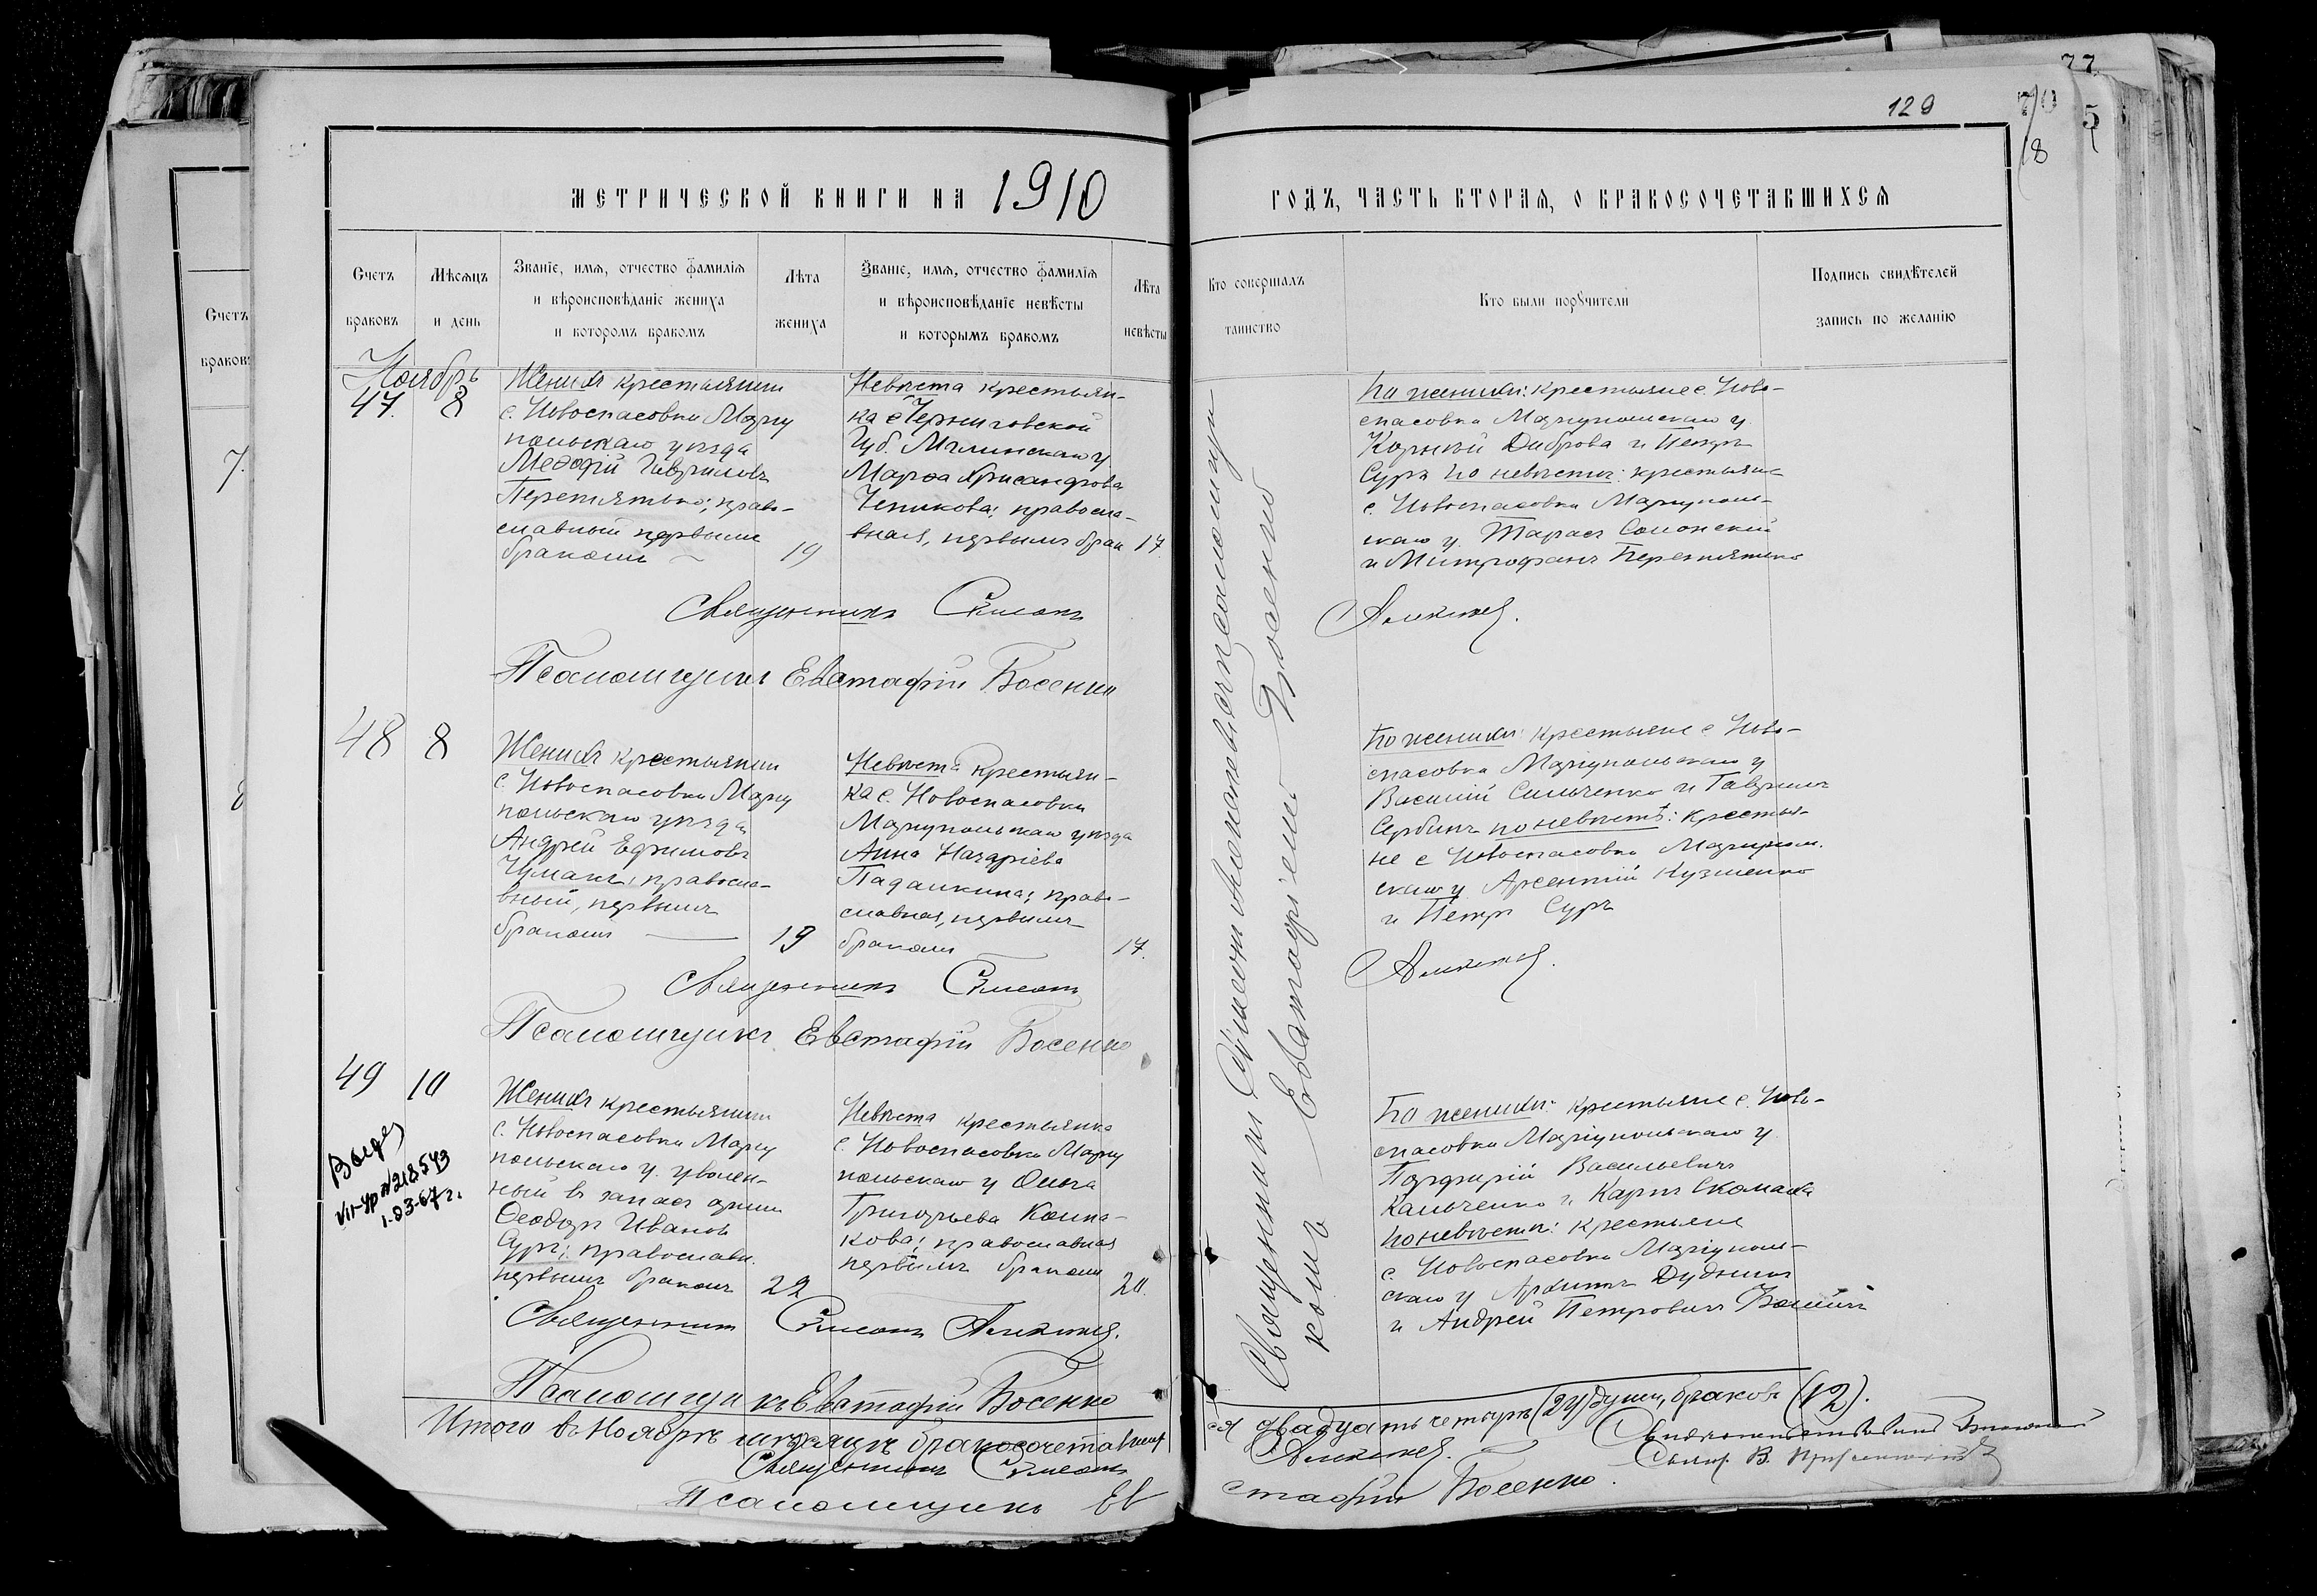 77
129
5
8
МЕТРИЧЕСКОЙ КНИГИ НА 1910
ГОДЪ, ЧАСТЬ ВТОРАЯ, О БРАКОСОЧЕТАВШИХСЯ
Счетъ браковъ
Мѣсяцъ и день
Званіе, имя, отчество фамилія
и вѣроисповѣданіе жениха
и которомъ бракомъ
Лѣта жениха
Званіе, имя, отчество фамилія
и вѣроисповѣданіе невѣсты
и которымъ бракомъ
Лѣта невѣсты
Кто совершалъ таинство
Кто были порꙋчители
Подпись свидѣтелей
запись по желанію
Счетъ
браковъ
7.
Ноябрь
47. 8
Женихъ крестьянинъ
с. Новоспасовки Маріу
польскаго уѣзда
Меѳодій Гавриловъ
Перепятько; право-
славный первымъ
бракомъ
19
Невѣста крестьян-
ка с Черниговской
Губ. Мглинскаго у
Марѳа Хрисанфова
Чепикова; правосла-
вная, первымъ брак
17
По женихѣ: крестьяне с. Ново-
спасовки Маріупольскаго у.
Корній Диброва и Петръ
Суръ по невѣстѣ: крестьяне
с. Новоспасовки Маріуполь-
скаго у. Тарасъ Солонскій
и Митрофанъ Перепятько
Священникъ Симеонъ
Псаломщикъ Евстафій Босенко
48 8
Женихъ крестьянинъ
с. Новоспасовки Маріу
польскаго уѣзда
Андрей Ефимовъ
Чумакъ; правосла-
вный, первымъ
бракомъ
19
Невѣста крестьян-
ка с. Новоспасовки
Маріупольскаго уѣзда
Анна Назаріева
Падалкина; право-
славная, первымъ
бракомъ
17.
По женихѣ: крестьяне с. Ново-
спасовки Маріупольскаго у
Василій Сильченко и Гавріилъ
Сербинъ по невѣстѣ: крестья-
не с Новоспасовки Маріуполь.
скаго у Арсентій Кузменко
и Петръ Суръ
Священникъ Симеонъ
Псаломщикъ Евстафій Босенко
49 10
Женихъ крестьянинъ
с. Новоспасовки Маріу
польскаго у. уволен-
ный въ запасъ арміи
Ѳеодоръ Ивановъ
Суръ; православн.
первымъ бракомъ
22
Невѣста крестьянка
с. Новоспасовки Маріу
польскаго у Ольга
Григорьева Колпа-
кова; православная
первымъ бракомъ
20.
По женихѣ: крестьяне с. Ново-
спасовки Маріупольскаго у
Порфирій Васильевичъ
Кальченко и Карпъ Скомаха
по невѣстѣ: крестьяне
с. Новоспасовки Маріуполь-
скаго у Архипъ Дудникъ
и Андрей Петровичъ
VII-УР №218543
1-03-67 г.
Священникъ Симеонъ
Псаломщикъ Евстафій Босенко
Священникъ Симеонъ съ псаломщи
комъ Евстафіемъ Босенко
Итого въ Ноябрѣ мѣсяцѣ бракосочетавших
ся двадцать четыре (24) души, браковъ (12).
Священникъ Симеонъ
Псаломщикъ Ев
стафій Босенко.